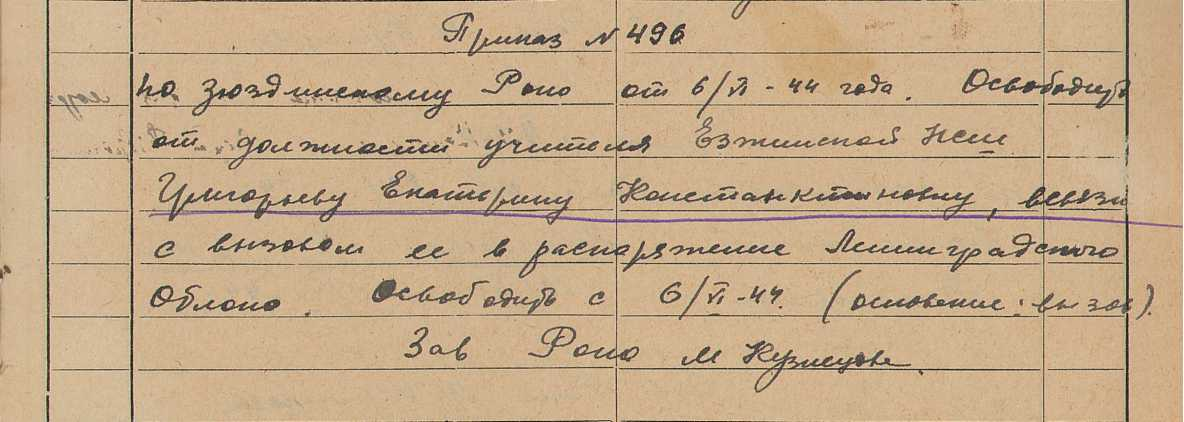 Приказ № 496
по Зюздинскому Роно от 6/VI - 44 года. Освободить
от должности учителя Езжинской Нсш
Григорьеву Екатерину Констанктиновну, всвязи
с вызовом ее в распаряжение Ленинградского
Облоно. Освободить с 6/VI - 44. (основение: вызов).
Зав Роно М Кузнецова.